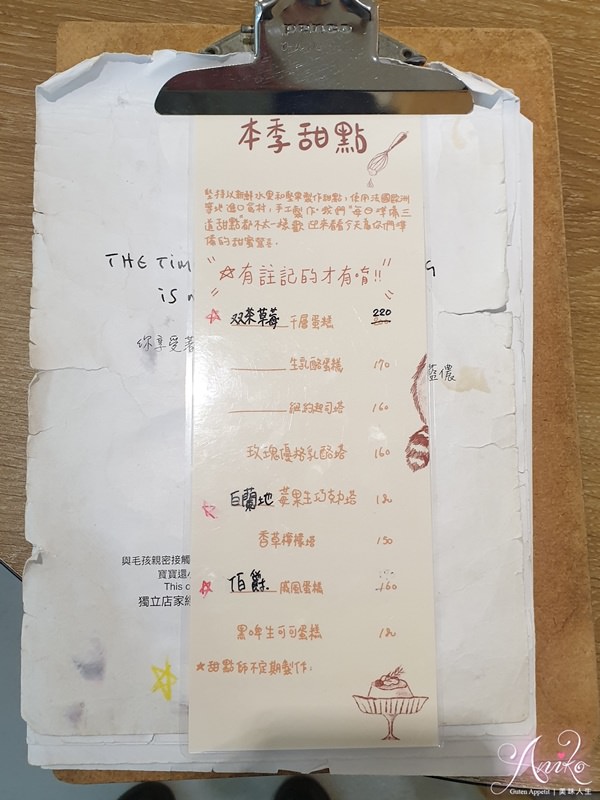 penco
本季甜點
堅持以新鮮水果和堅果製作甜點,使用法國歐洲
等地進口食材,手工製作.我們"每日準備三
道甜點"都不太一樣歡迎來看看今天為你們準
備的甜蜜驚喜.
☆有註記的才有唷!!
☆ 双茶草莓 千層蛋糕 220
生乳酪蛋糕 170
紐約起司塔 160
玫瑰優格乳酪塔 160
☆ 白蘭地 莓果生巧克力塔 180
香草檸檬塔 150
☆ 伯爵 戚風蛋糕 160
黑啤生可可蛋糕 180
★甜點師不定期製作
THE TIM
G
IS
你享受著
與毛孩親密接觸
寶寶還
This
獨立店家
Aniko
Guten Appetit | 美味人生